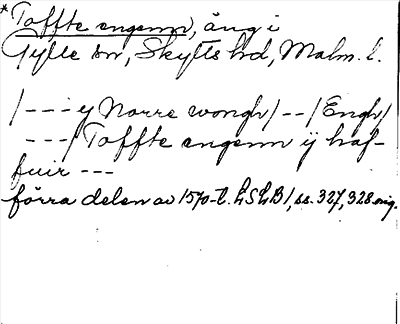 *Toffte engenn, äng i
Gylle sn, Skytts hd, Malm. l.
/--- y Norre wongh/--/Engh/
---/Toffte engenn ÿ haf-
fuir ---
förra delen av 1570-t. LSLB1, ss. 327, 328 orig.